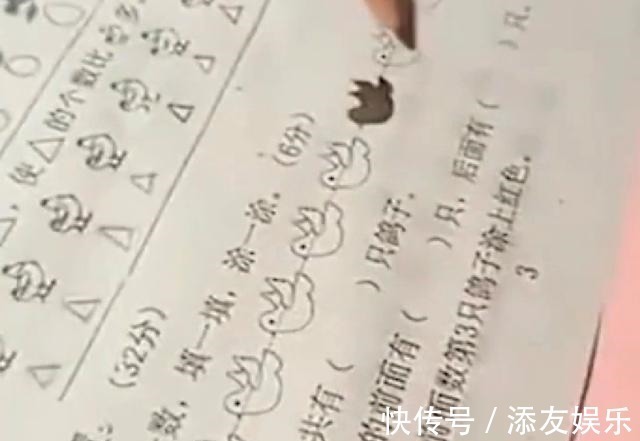 ，使△的个数比
(32分)
数，填一填，涂一涂。(6分)
共有(　　)只鸽子。
前面有(　　)只，后面有(　　)只，
面数第3只鸽子涂上红色。
3
快传号／添友娱乐